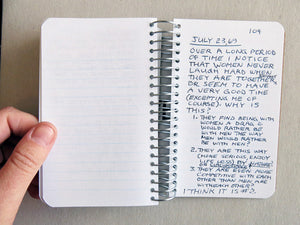 109
JULY 23, 69.
OVER A LONG PERIOD
OF TIME I NOTICE
THAT WOMEN NEVER
LAUGH HARD WHEN
THEY ARE TOGETHER,
OR SEEM TO HAVE
A VERY GOOD TIME
(EXCEPTING ME OF
COURSE). WHY IS
THIS?
1. THEY FIND BEING WITH
WOMEN A DRAG &
WOULD RATHER BE
WITH MEN THE WAY
MEN WOULD RATHER
BE WITH MEN?
2. THEY ARE THIS WAY
(MORE SERIOUS, ENJOY
LIFE LESS) BY NATURE
OR
3. THEY ARE EVEN MORE
COMPETITIVE WITH EACH
OTHER THAN MEN ARE
WITH EACH OTHER?
I THINK IT IS #2.